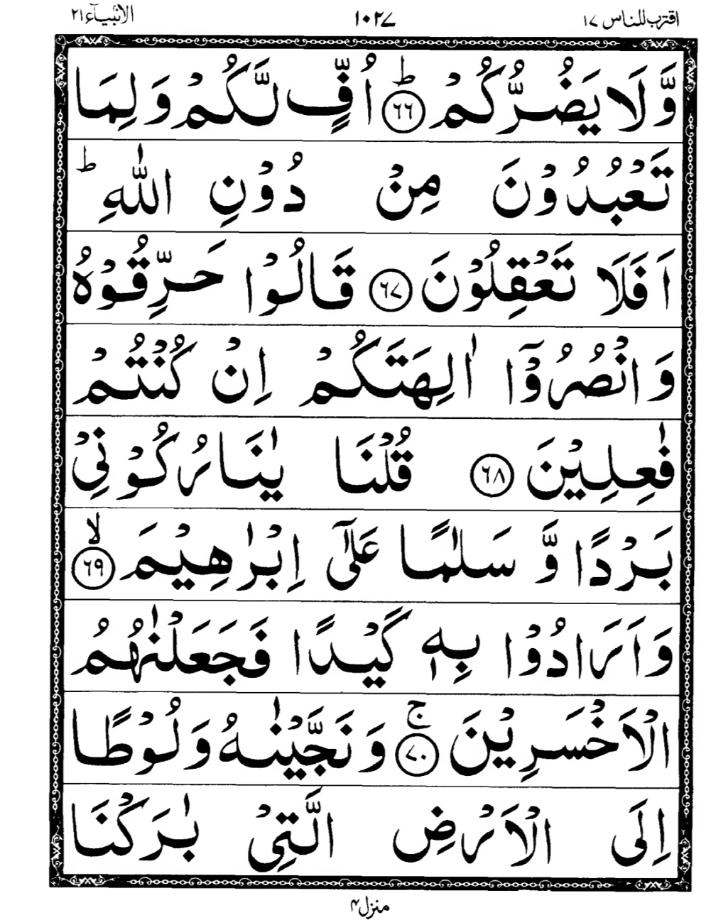 اقترب للناس ١٧ ١٠٢٧ الانبیآء ٢١
وَّلَا یَضُرُّكُمْ ؕ﴿٦٦﴾ اُفٍّ لَّكُمْ وَ لِمَا
تَعْبُدُوْنَ مِنْ دُوْنِ اللّٰهِ ؕ
اَفَلَا تَعْقِلُوْنَ ﴿٦٧﴾ قَالُوْا حَرِّقُوْهُ
وَ انْصُرُوْۤا اٰلِهَتَكُمْ اِنْ كُنْتُمْ
فٰعِلِیْنَ ﴿٦٨﴾ قُلْنَا یٰنَارُ كُوْنِیْ
بَرْدًا وَّ سَلٰمًا عَلٰۤی اِبْرٰهِیْمَ ۙ﴿٦٩﴾
وَ اَرَادُوْا بِهٖ كَیْدًا فَجَعَلْنٰهُمُ
الْاَخْسَرِیْنَ ۚ﴿٧٠﴾ وَ نَجَّیْنٰهُ وَ لُوْطًا
اِلَی الْاَرْضِ الَّتِیْ بٰرَكْنَا
منزل ۴